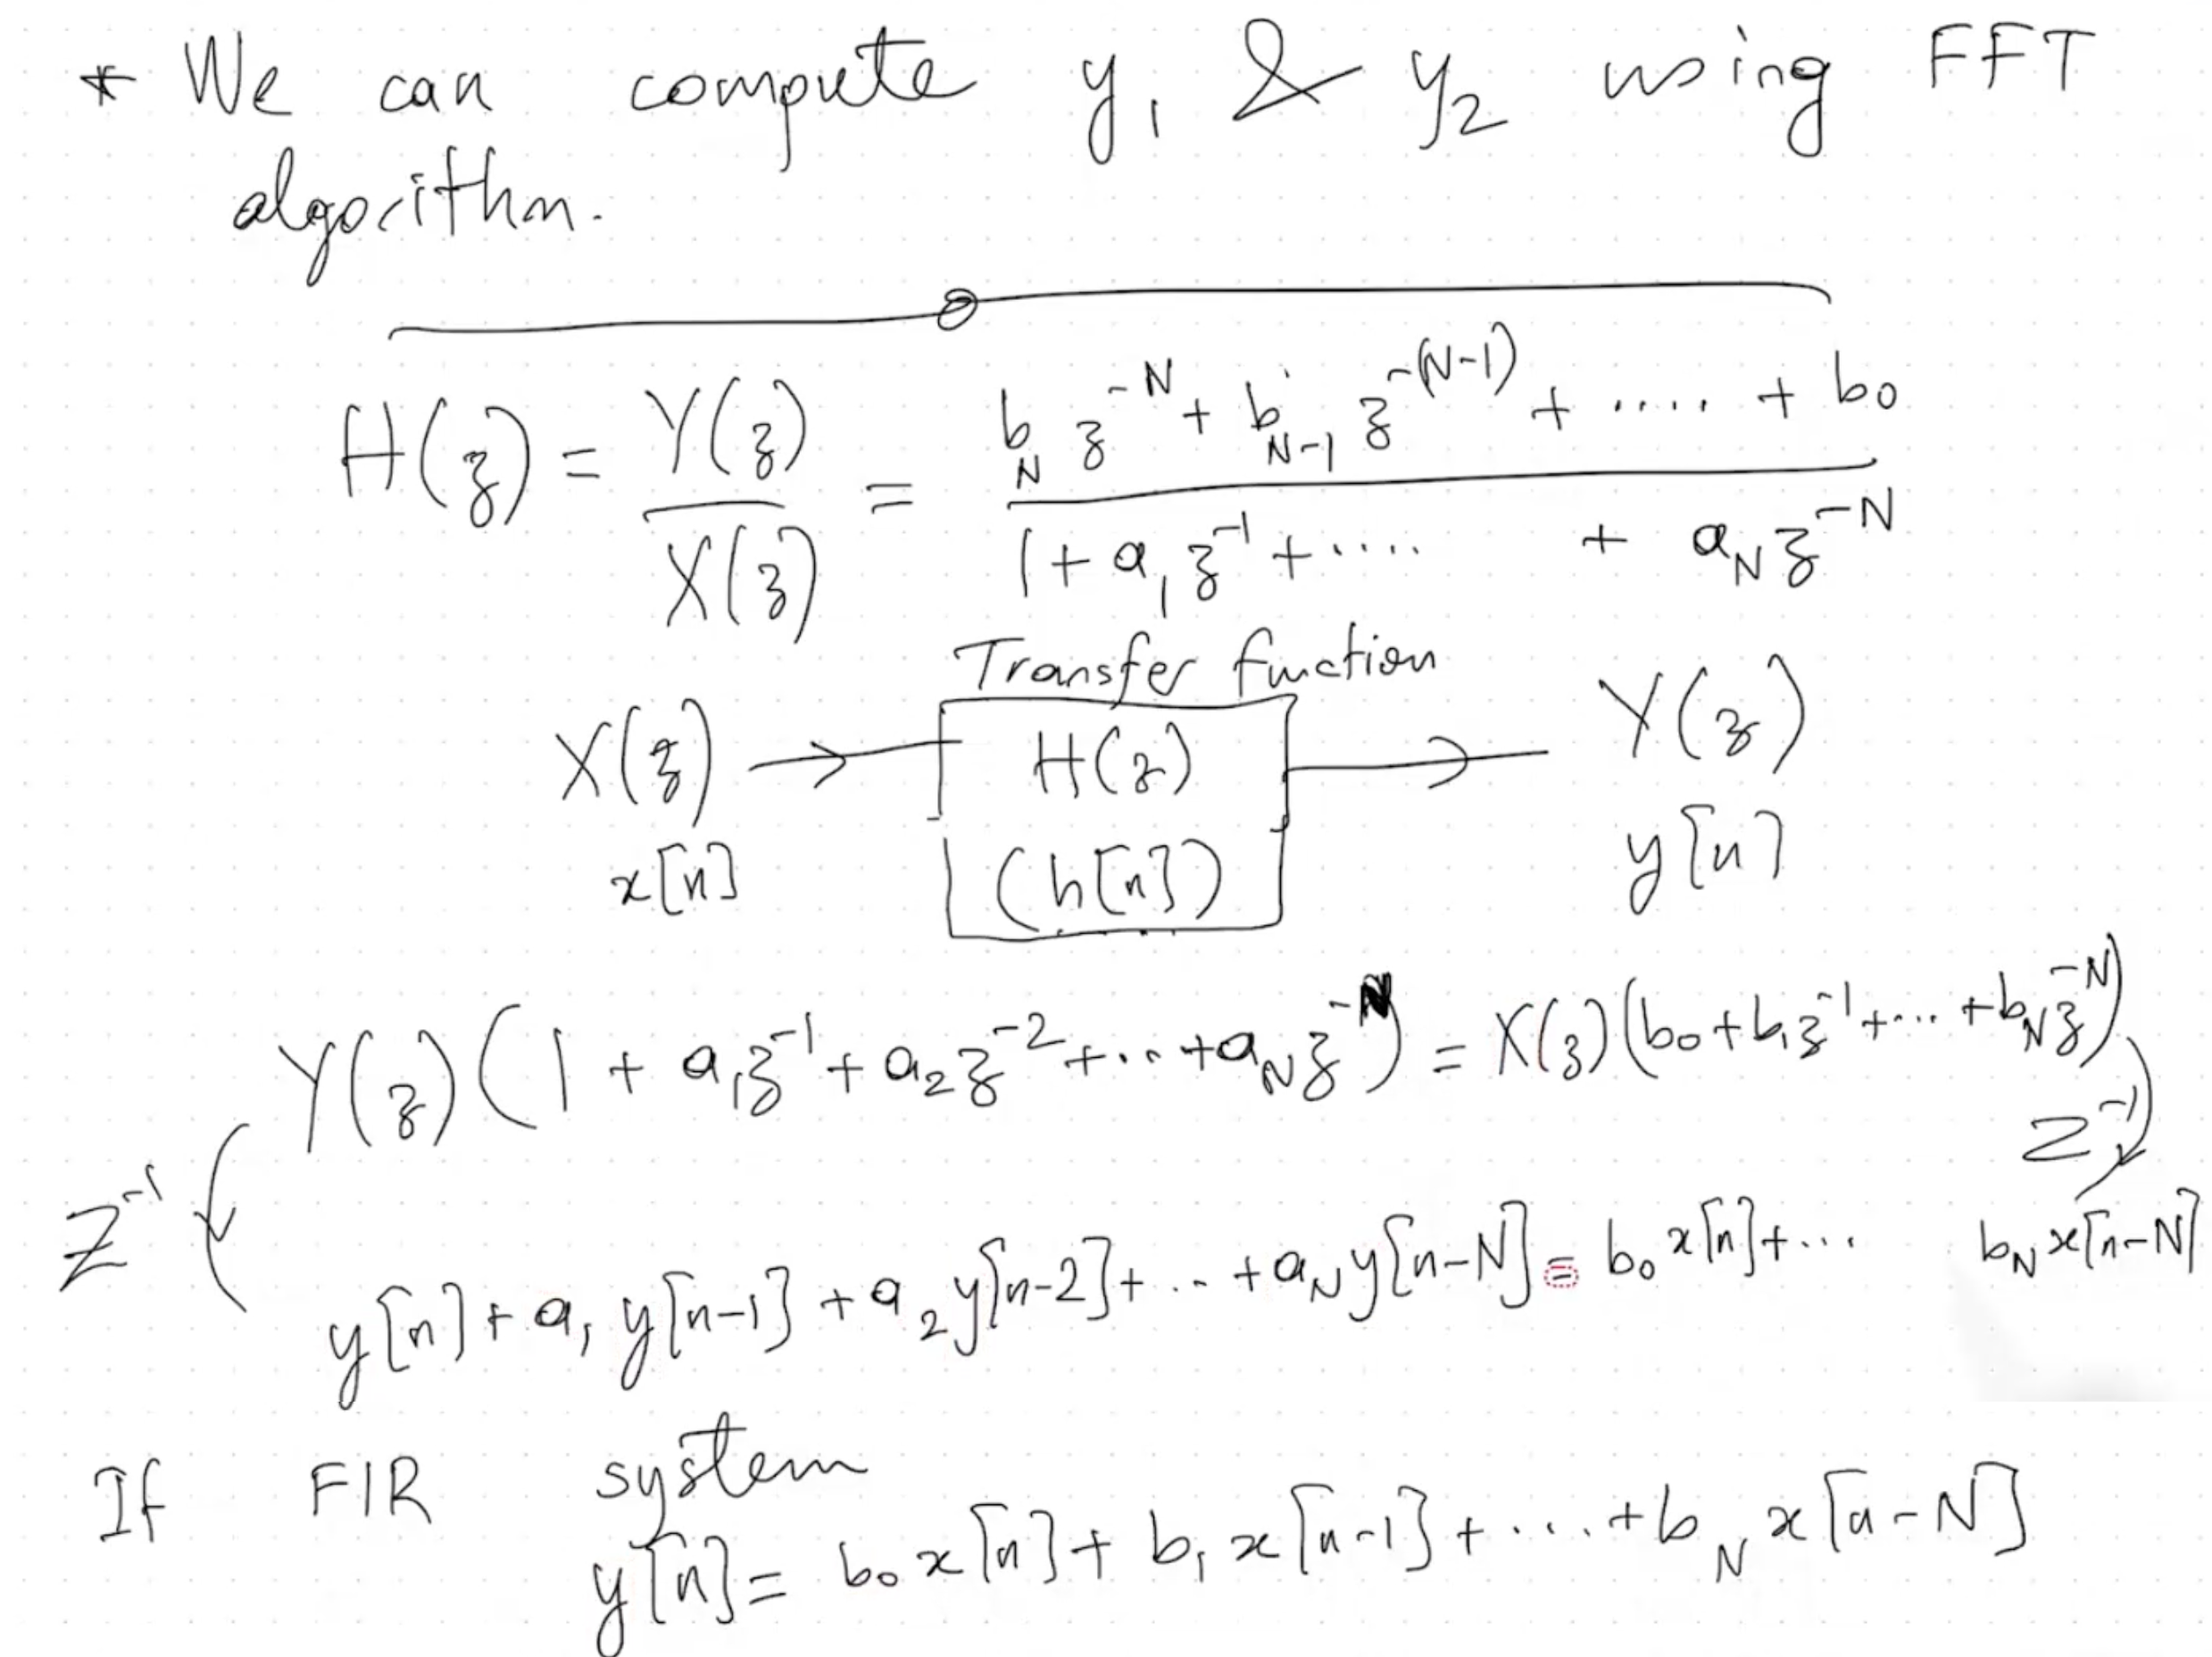 * We can compute y₁ & y₂ using FFT
algorithm.
H(z) = Y(z)/X(z) = (b_N z^{-N} + b_{N-1} z^{-(N-1)} + ..... + b₀)/(1 + a₁z^{-1} + ..... + a_N z^{-N})
Transfer function
X(z) → H(z) → Y(z)
x[n] (h[n]) y[n]
Y(z)(1 + a₁z^{-1} + a₂z^{-2} + ... + a_N z^{-N}) = X(z)(b₀ + b₁z^{-1} + ... + b_N z^{-N})
Z^{-1} Z^{-1}
y[n] + a₁y[n-1] + a₂y[n-2] + ... + a_N y[n-N] = b₀x[n] + ... b_N x[n-N]
If FIR system
y[n] = b₀x[n] + b₁x[n-1] + .... + b_N x[n-N]